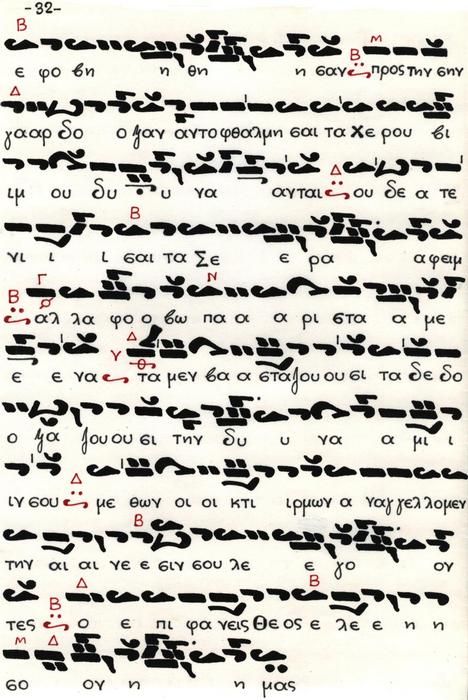 -32-
Β Β Μ
ε φο βη η θη η σαν προς την σην
Δ
γααρ δο ο ξαν αντοφθαλμη σαι τα Χε ρου βι
Δ
ιμ ου δυ υ να ανται ου δε α τε
Β
νι ι ι σαι τα Σε ε ρα αφειμ
Β Γ Ν
αλ λα φο ο βω πα α α ρι στα α με
Δ
ε ε να τα μεν βα α σταζουουσι τα δε δο
ο ξα ζουουσι την δυ υ να α μι ι
Δ
ιν σου με θων οι οι κτι ιρμων α ναγγελλομεν
Β
την αι αι νε ε σιν σου λε ε γο ον
Β Δ Β
τες ο ε πι φα νεις Θε ος ε λε ε η η
Μ Δ
σο ον η η μας